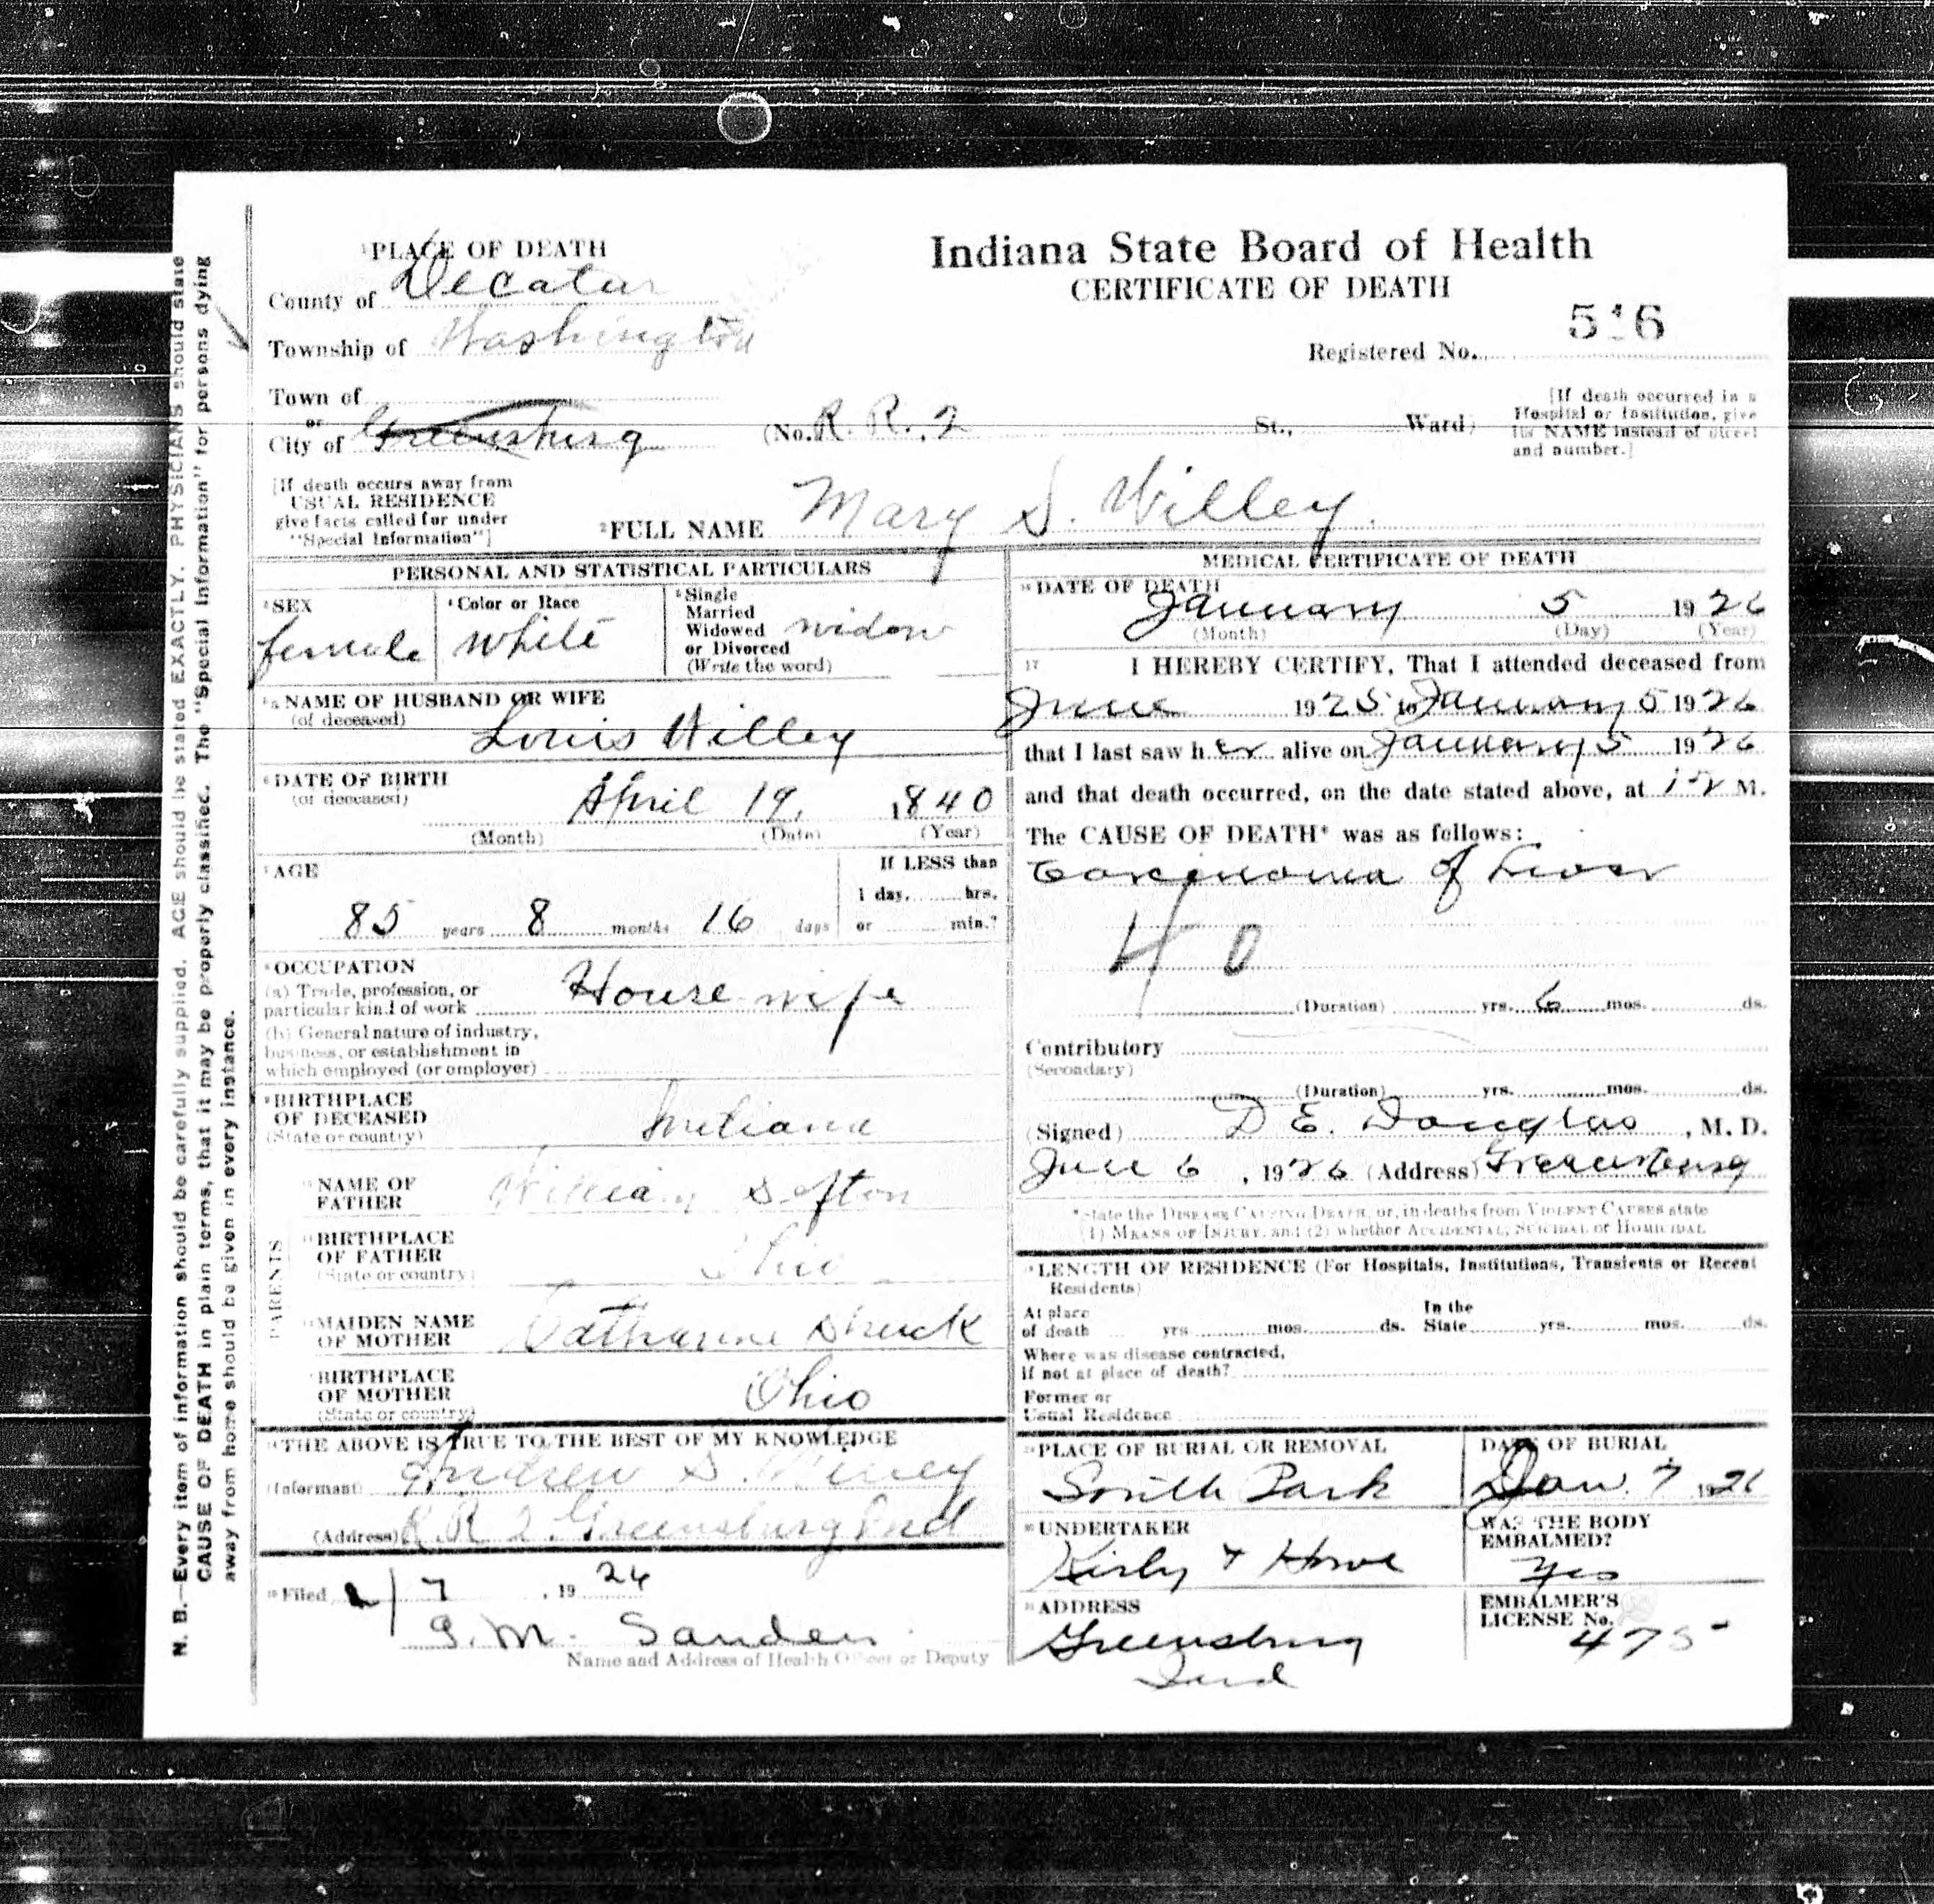 Indiana State Board of Health
CERTIFICATE OF DEATH
PLACE OF DEATH
County of Decatur
Township of Washington
Registered No. 516
Town of
or
City of Greensburg (No. R. R. 2 St., Ward)
[If death occurred in a
Hospital or Institution, give
its NAME instead of street
and number.]
[If death occurs away from
USUAL RESIDENCE
give facts called for under
"Special Information"]
2 FULL NAME Mary S. Willey
PERSONAL AND STATISTICAL PARTICULARS
3 SEX
female
4 Color or Race
White
5 Single
Married
Widowed
or Divorced
(Write the word)
widow
5a NAME OF HUSBAND OR WIFE
(of deceased)
Louis Willey
6 DATE OF BIRTH
(of deceased)
April 19, 1840
(Month) (Date) (Year)
7 AGE
85 years 8 months 16 days
If LESS than
1 day, hrs.
or min.?
8 OCCUPATION
(a) Trade, profession, or
particular kind of work House wife
(b) General nature of industry,
business, or establishment in
which employed (or employer)
9 BIRTHPLACE
OF DECEASED
(State or country)
Indiana
PARENTS
10 NAME OF
FATHER
William Sefton
11 BIRTHPLACE
OF FATHER
(State or country)
Ohio
12 MAIDEN NAME
OF MOTHER
Catharine Shuck
13 BIRTHPLACE
OF MOTHER
(State or country)
Ohio
14 THE ABOVE IS TRUE TO THE BEST OF MY KNOWLEDGE
(Informant) Andrew S. Willey
(Address) R.R 2 Greensburg Ind
15 Filed 1/7, 19 26
G. M. Sanders
Name and Address of Health Officer or Deputy
MEDICAL CERTIFICATE OF DEATH
16 DATE OF DEATH
January 5 1926
(Month) (Day) (Year)
17 I HEREBY CERTIFY, That I attended deceased from
June 1925 to January 5 1926
that I last saw her alive on January 5 1926
and that death occurred, on the date stated above, at 12 M.
The CAUSE OF DEATH* was as follows:
Carcinoma of Liver
40
(Duration) yrs. 6 mos. ds.
Contributory
(Secondary)
(Duration) yrs. mos. ds.
(Signed) D E. Douglas, M. D.
6, 1926 (Address) Greensburg
*State the DISEASE CAUSING DEATH, or, in deaths from VIOLENT CAUSES state
(1) MEANS OF INJURY, and (2) whether ACCIDENTAL, SUICIDAL or HOMICIDAL
18 LENGTH OF RESIDENCE (For Hospitals, Institutions, Transients or Recent
Residents)
At place
of death yrs. mos. ds.
In the
State yrs. mos. ds.
Where was disease contracted,
if not at place of death?
Former or
Usual Residence
19 PLACE OF BURIAL OR REMOVAL
South Park
DATE OF BURIAL
Jan. 7 1926
20 UNDERTAKER
Kirby & Howe
WAS THE BODY
EMBALMED?
Yes
20 ADDRESS
Greensburg
Ind
EMBALMER'S
LICENSE No.
475
N. B.—Every item of information should be carefully supplied. AGE should be stated EXACTLY. PHYSICIANS should state
CAUSE OF DEATH in plain terms, that it may be properly classified. The "Special Information" for persons dying
away from home should be given in every instance.